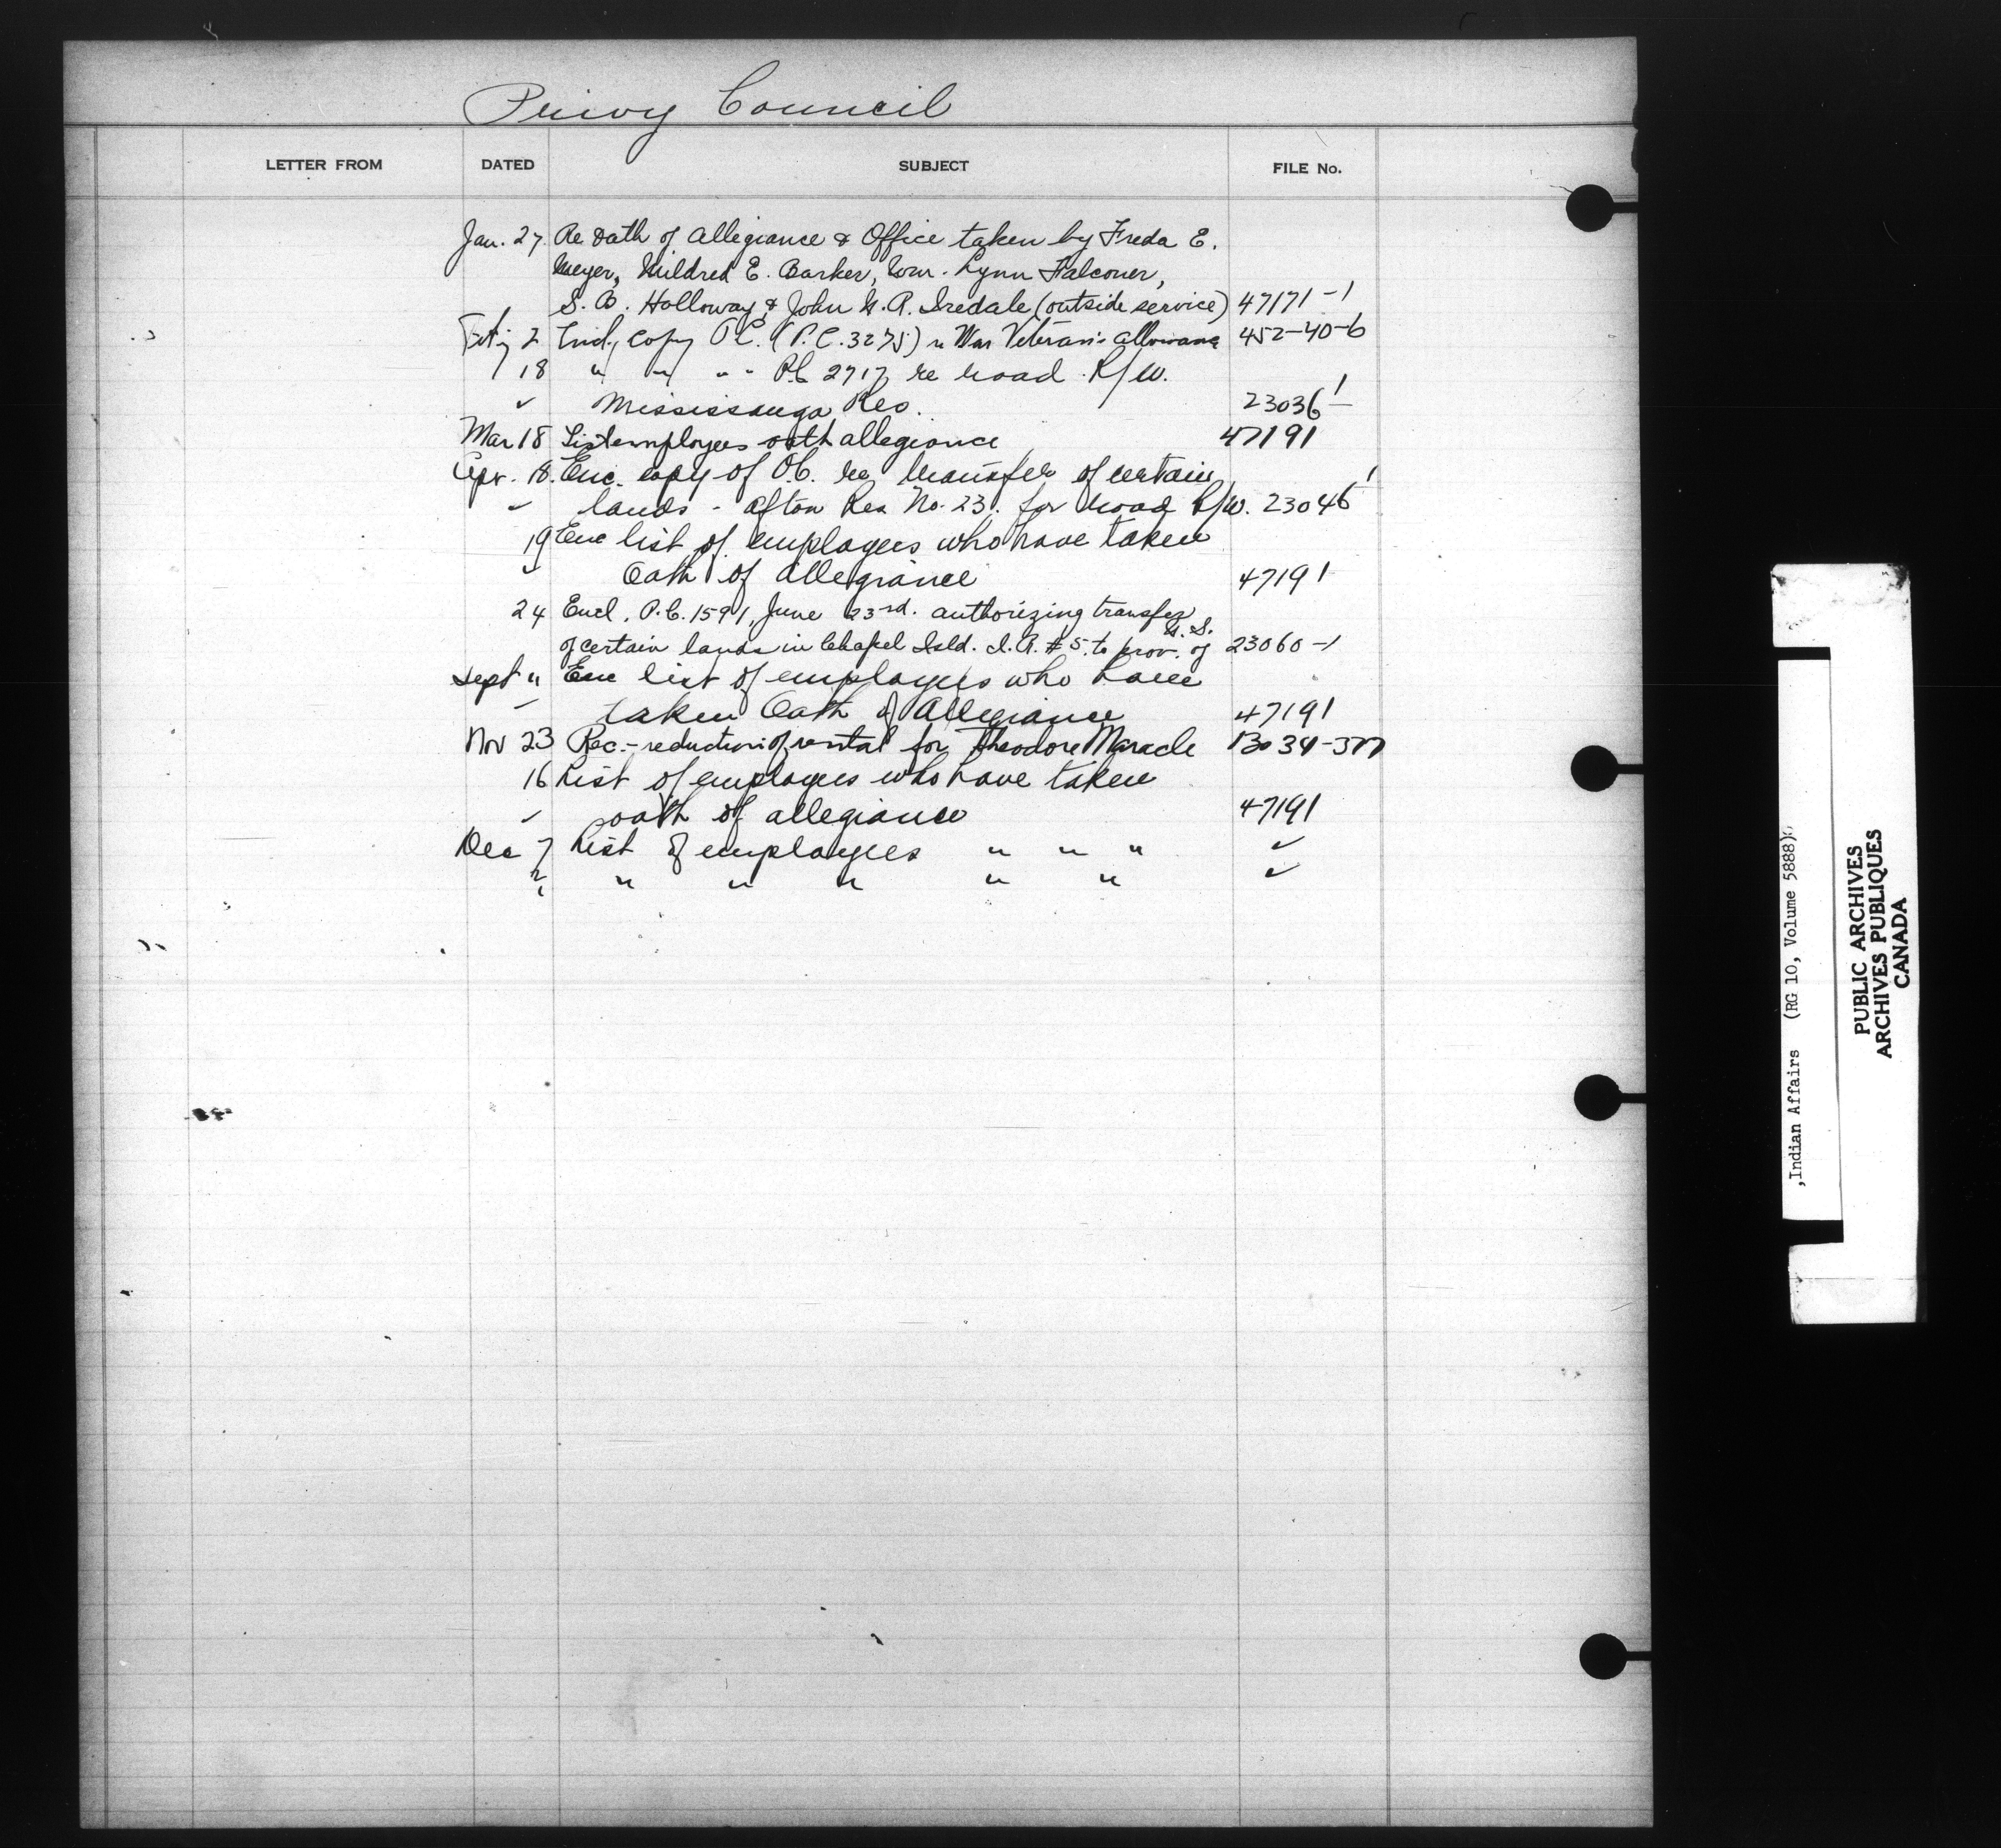 Privy Council
LETTER FROM DATED SUBJECT FILE No.
Jan. 27 Re Oath of Allegiance & Office taken by Freda E.
Meyer, Mildred E. Barker, Wm. Lynn Falconer,
S. B. Holloway & John G. A. Iredale (outside service) 47171-1
2 copy O.C. (P.C. 3275) re War Veterans allowance 452-40-6
18 " " " " P.C. 2717 re road R/W.
" Mississauga Res. 23036-1
Mar 18 List employees oath allegiance 47191
Apr. 18. Enc. copy of O.C. re transfer of certain
" lands - Afton Res No. 23. for road R/W. 23046-1
19 Enc list of employees who have taken
" Oath of allegiance 47191
24 Encl. P.C. 1591, June 23rd. authorizing transfer
of certain lands in Chapel Isld. I.R. #5 to prov. of N.S. 23060-1
Sept " Enc list of employees who have
" taken Oath of Allegiance 47191
Nov 23 Rec.- reduction of rental for Theodore Maracle
16 List of employees who have taken
" oath of allegiance 47191
Dec 7 List of employees " " " "
" " " " " " "
,Indian Affairs (RG 10, Volume 5888)
PUBLIC ARCHIVES
ARCHIVES PUBLIQUES
CANADA